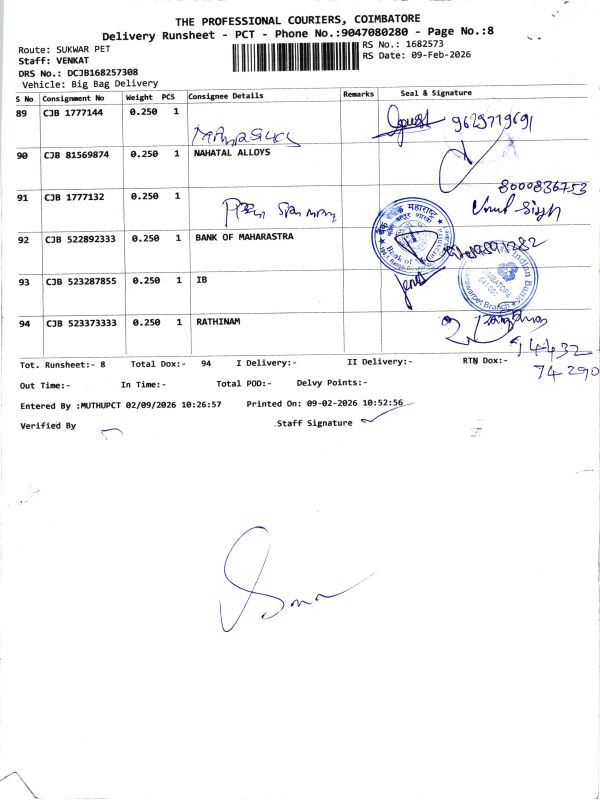 THE PROFESSIONAL COURIERS, COIMBATORE
Delivery Runsheet - PCT - Phone No.:9047080280 - Page No.:8
Route: SUKWAR PET
RS No.: 1682573
Staff: VENKAT
RS Date: 09-Feb-2026
DRS No.: DCJB168257308
Vehicle: Big Bag Delivery
S No Consignment No Weight PCS Consignee Details Remarks Seal & Signature
89 CJB 1777144 0.250 1
9629719691
90 CJB 81569874 0.250 1 NAHATAL ALLOYS
8000836753
91 CJB 1777132 0.250 1
Singh
92 CJB 522892333 0.250 1 BANK OF MAHARASTRA
बैंक ऑफ महाराष्ट्र
Bank of
93 CJB 523287855 0.250 1 IB
Indian Bank
COIMBATORE
94 CJB 523373333 0.250 1 RATHINAM
94432
74290
Tot. Runsheet:- 8 Total Dox:- 94 I Delivery:- II Delivery:- RTN Dox:-
Out Time:- In Time:- Total POD:- Delvy Points:-
Entered By :MUTHUPCT 02/09/2026 10:26:57 Printed On: 09-02-2026 10:52:56
Verified By Staff Signature